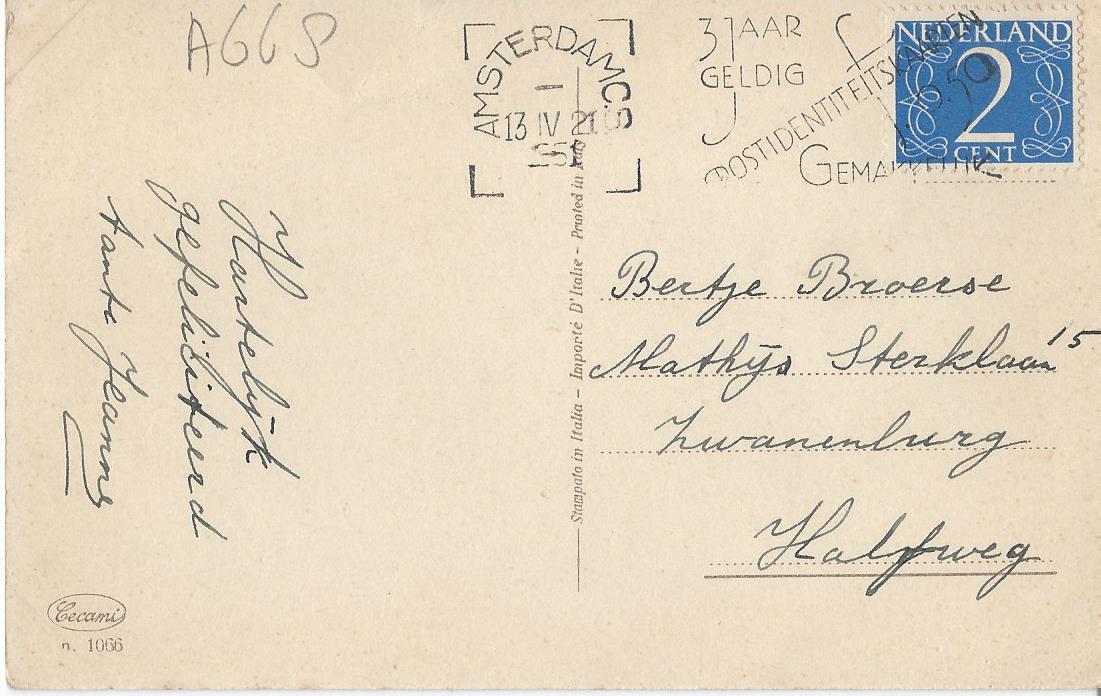 A66S
AMSTERDAM C.S
13 IV 21
1951
3 JAAR
GELDIG
POSTIDENTITEITSKAARTEN
f. 0.50
NEDERLAND
2
CENT
Hartelijk
gefeliciteerd
tante Jeanne
Stampato in Italia - Importé D'Italie - Printed in Italy
Bertje Broerse
Mathijs Sterklaan 15
Zwanenburg
Halfweg
Cecami
n. 1066